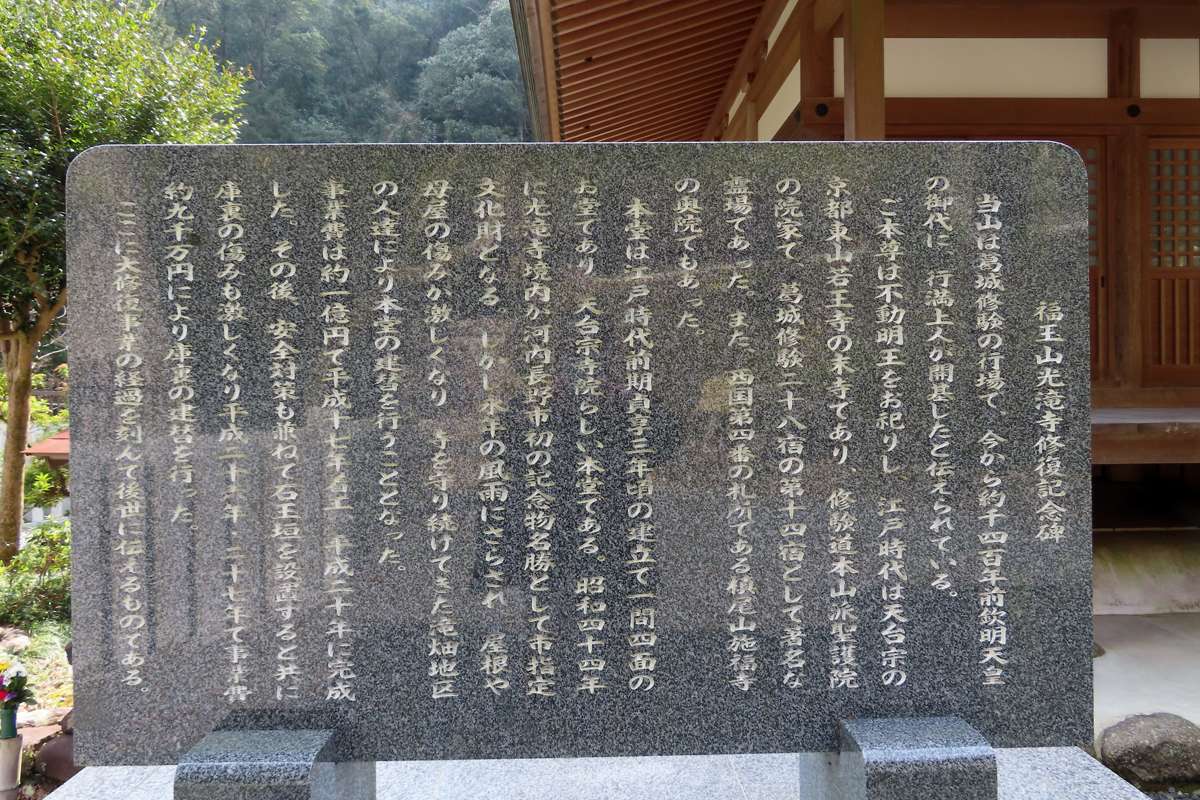 福王山光滝寺修復記念碑
当山は葛城修験の行場で、今から約千四百年前欽明天皇
の御代に、行満上人が開基したと伝えられている。
ご本尊は不動明王をお祀りし、江戸時代は天台宗の
京都東山若王寺の末寺であり、修験道本山派聖護院
の院家で、葛城修験二十八宿の第十四宿として著名な
霊場であった。また、西国第四番の札所である槙尾山施福寺
の奥院でもあった。
本堂は江戸時代前期貞享三年頃の建立で一間四面の
お堂であり、天台宗寺院らしい本堂である。昭和四十四年
に光滝寺境内が河内長野市初の記念物名勝として市指定
文化財となる。しかし永年の風雨にさらされ、屋根や
母屋の傷みが激しくなり、寺を守り続けてきた滝畑地区
の人達により本堂の建替を行うこととなった。
事業費は約一億円で平成十七年着工、平成二十年に完成
した。その後、安全対策も兼ねて石玉垣を設置すると共に
庫裏の傷みも激しくなり平成二十六年・二十七年で事業費
約九千万円により庫裏の建替を行った。
ここに大修復事業の経過を刻んで後世に伝えるものである。